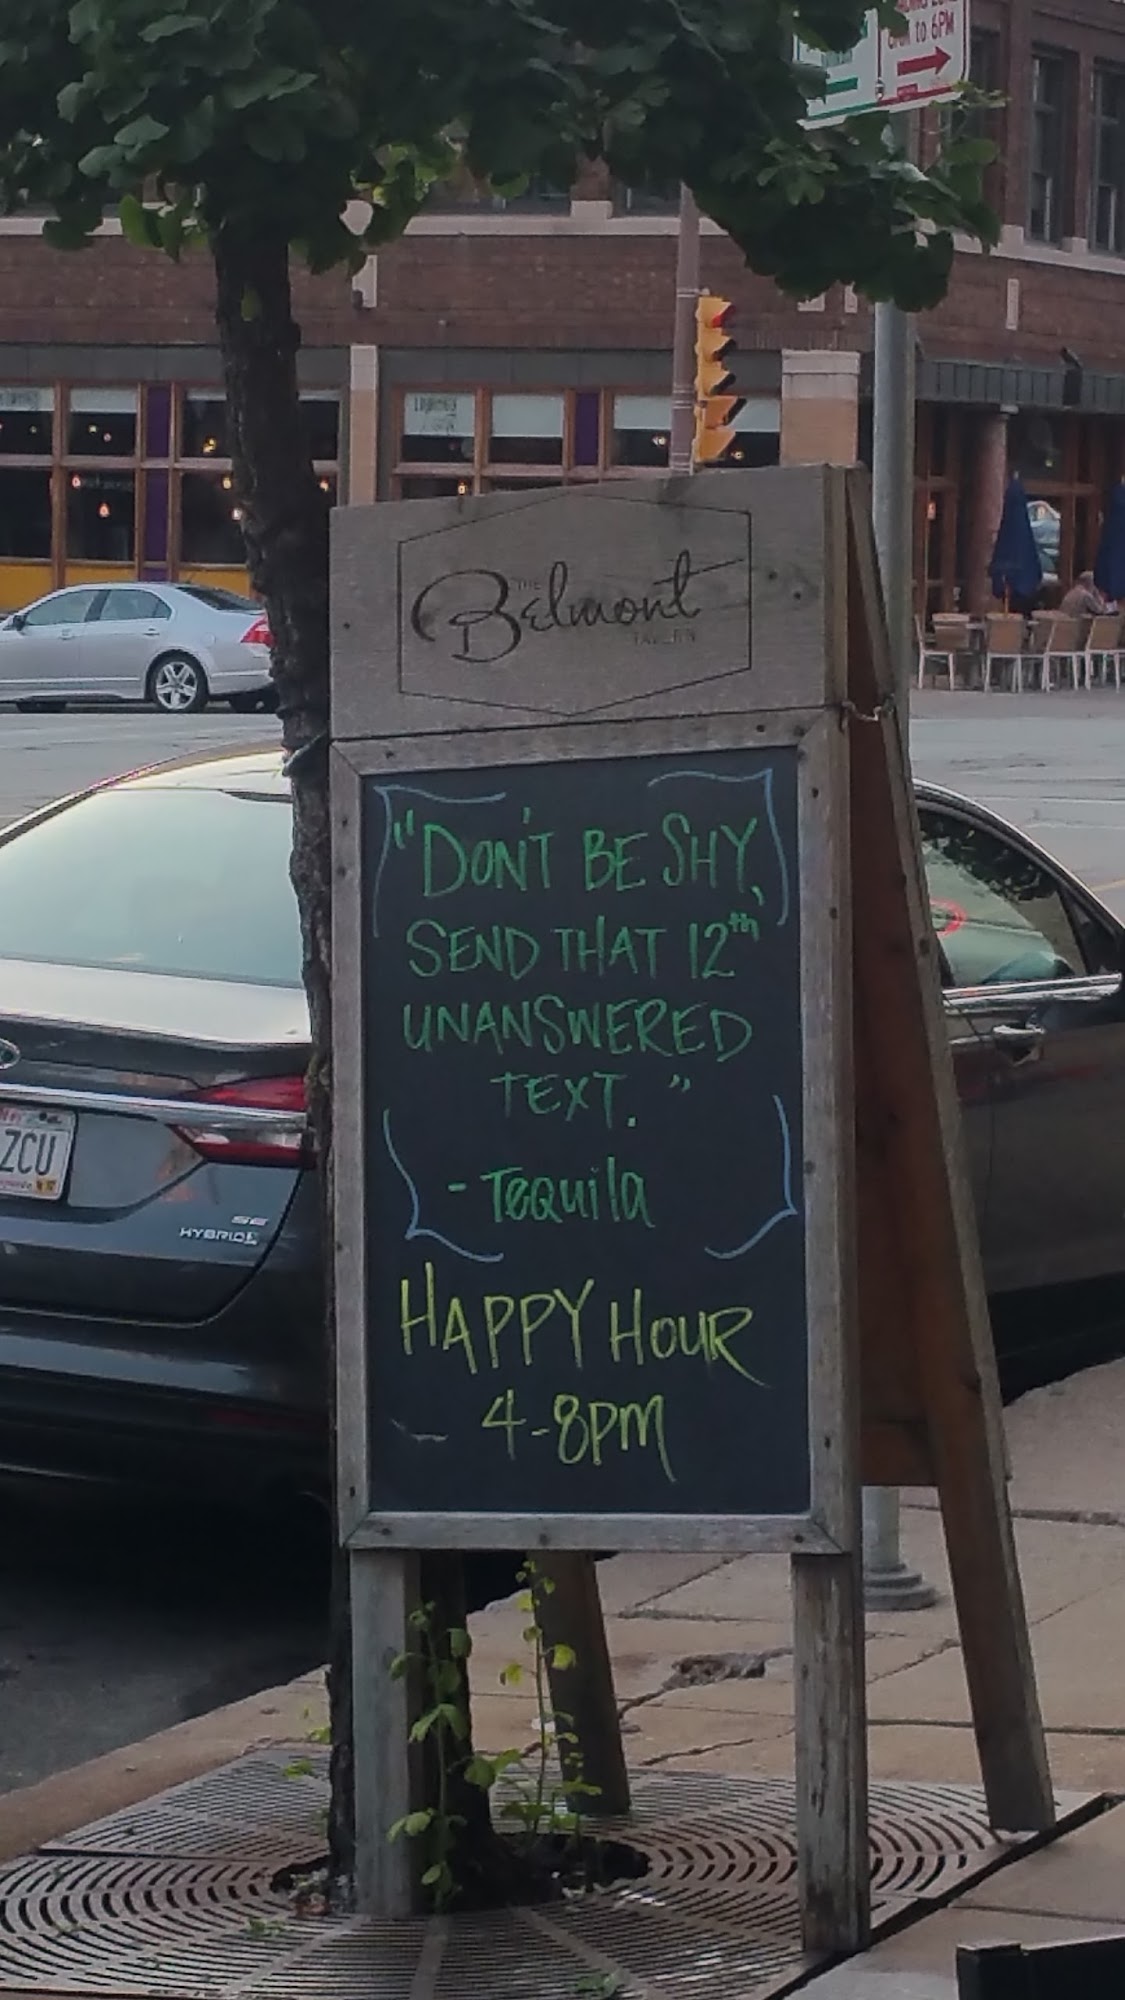 6PM
THE
Belmont
TAVERN
"DON'T BE SHY,
SEND THAT 12th
UNANSWERED
TEXT."
- Tequila
HAPPY HOUR
4-8PM
ZCU
SE
HYBRID